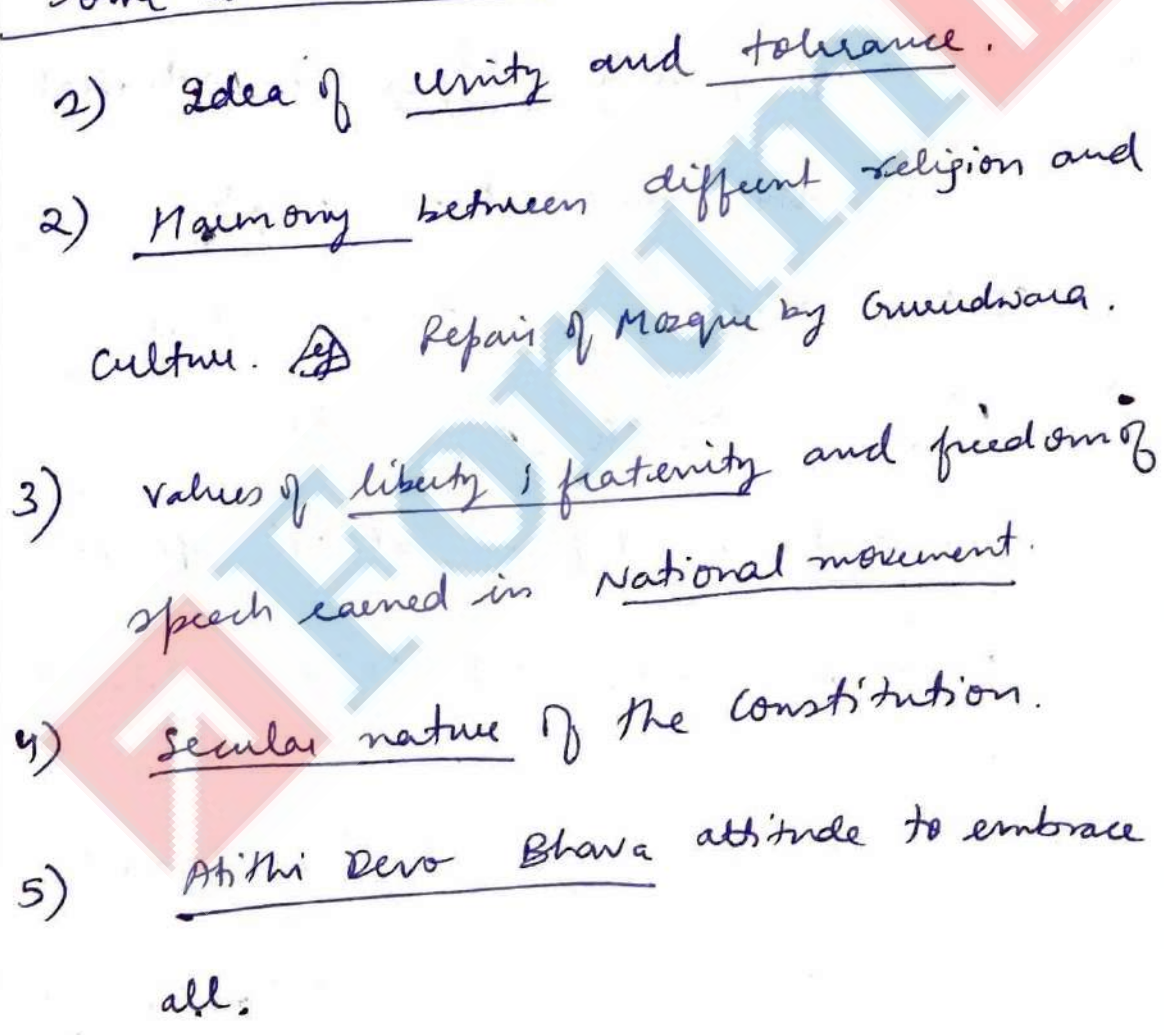 1) Idea of Unity and tolerance.
2) Harmony between different religion and
culture. eg Repair of Mosque by Gurudwara.
3) Values of liberty, fraternity and freedom of
speech earned in National movement.
4) Secular nature of the constitution.
5) Atithi Devo Bhava attitude to embrace
all.
Forum